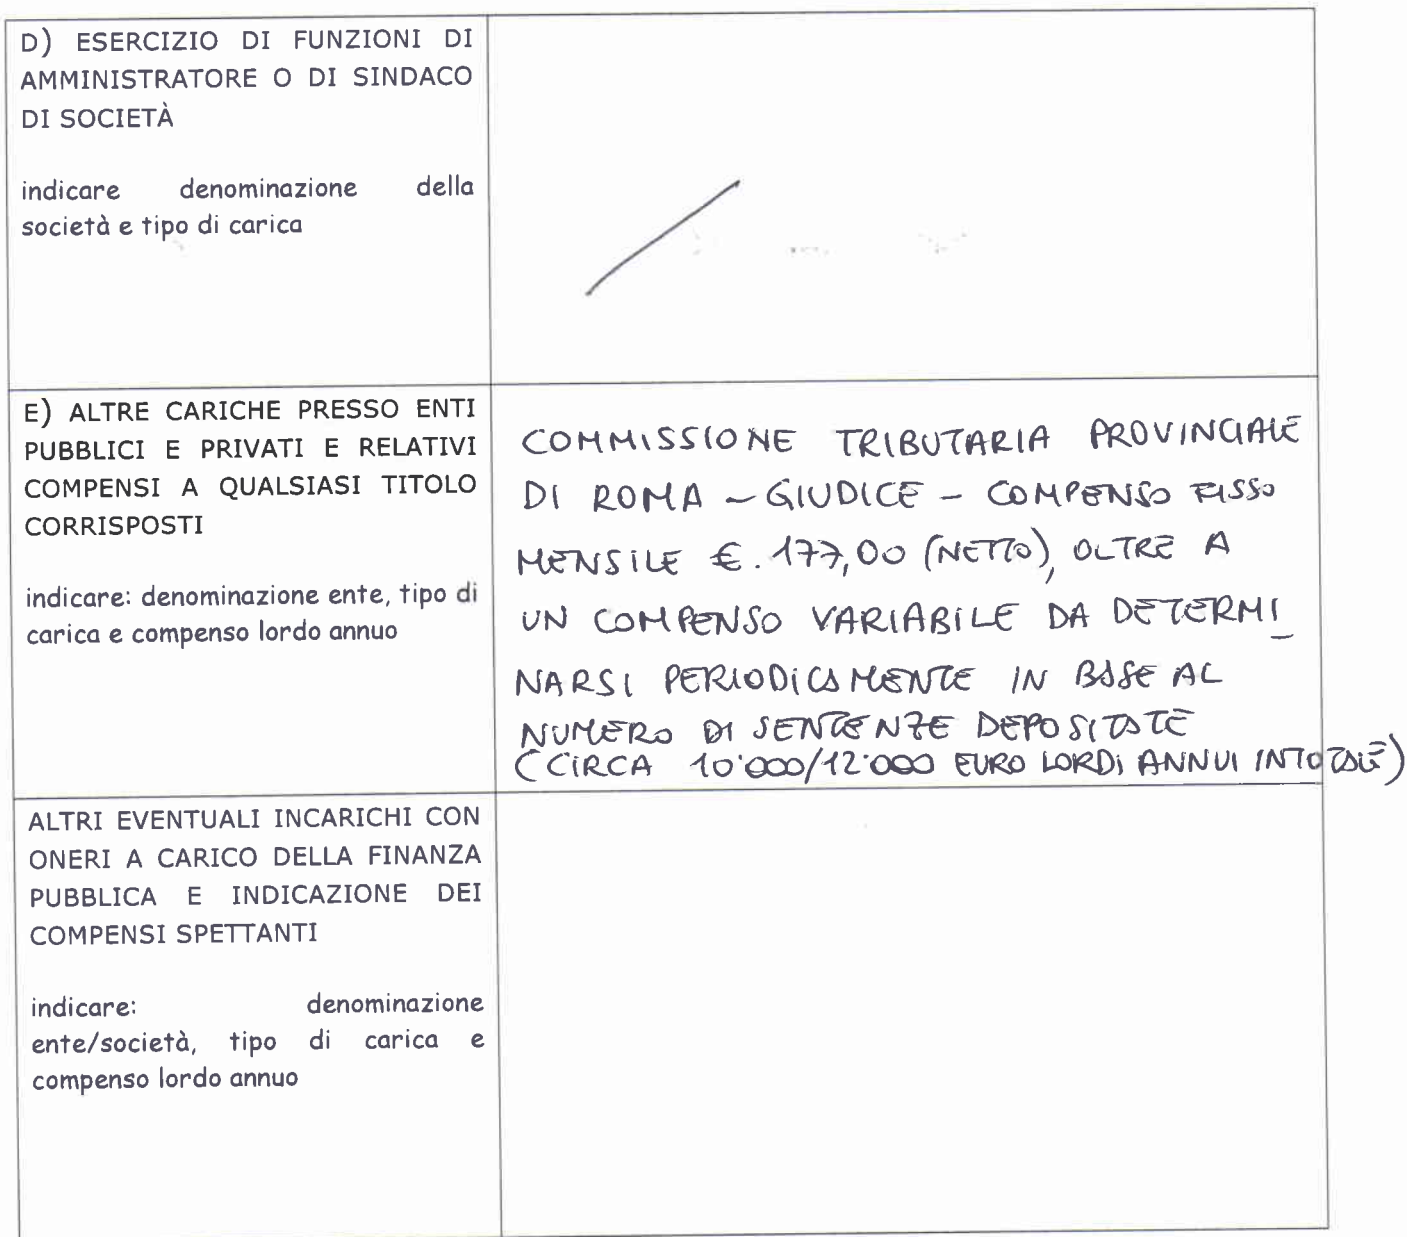 D) ESERCIZIO DI FUNZIONI DI
AMMINISTRATORE O DI SINDACO
DI SOCIETÀ
indicare denominazione della
società e tipo di carica
E) ALTRE CARICHE PRESSO ENTI
PUBBLICI E PRIVATI E RELATIVI
COMPENSI A QUALSIASI TITOLO
CORRISPOSTI
indicare: denominazione ente, tipo di
carica e compenso lordo annuo
COMMISSIONE TRIBUTARIA PROVINCIALE
DI ROMA - GIUDICE - COMPENSO FISSO
MENSILE €. 177,00 (NETTO), OLTRE A
UN COMPENSO VARIABILE DA DETERMI_
NARSI PERIODICAMENTE IN BASE AL
NUMERO DI SENTENZE DEPOSITATE
(CIRCA 10'000/12'000 EURO LORDI ANNUI IN TOTALE)
ALTRI EVENTUALI INCARICHI CON
ONERI A CARICO DELLA FINANZA
PUBBLICA E INDICAZIONE DEI
COMPENSI SPETTANTI
indicare: denominazione
ente/società, tipo di carica e
compenso lordo annuo